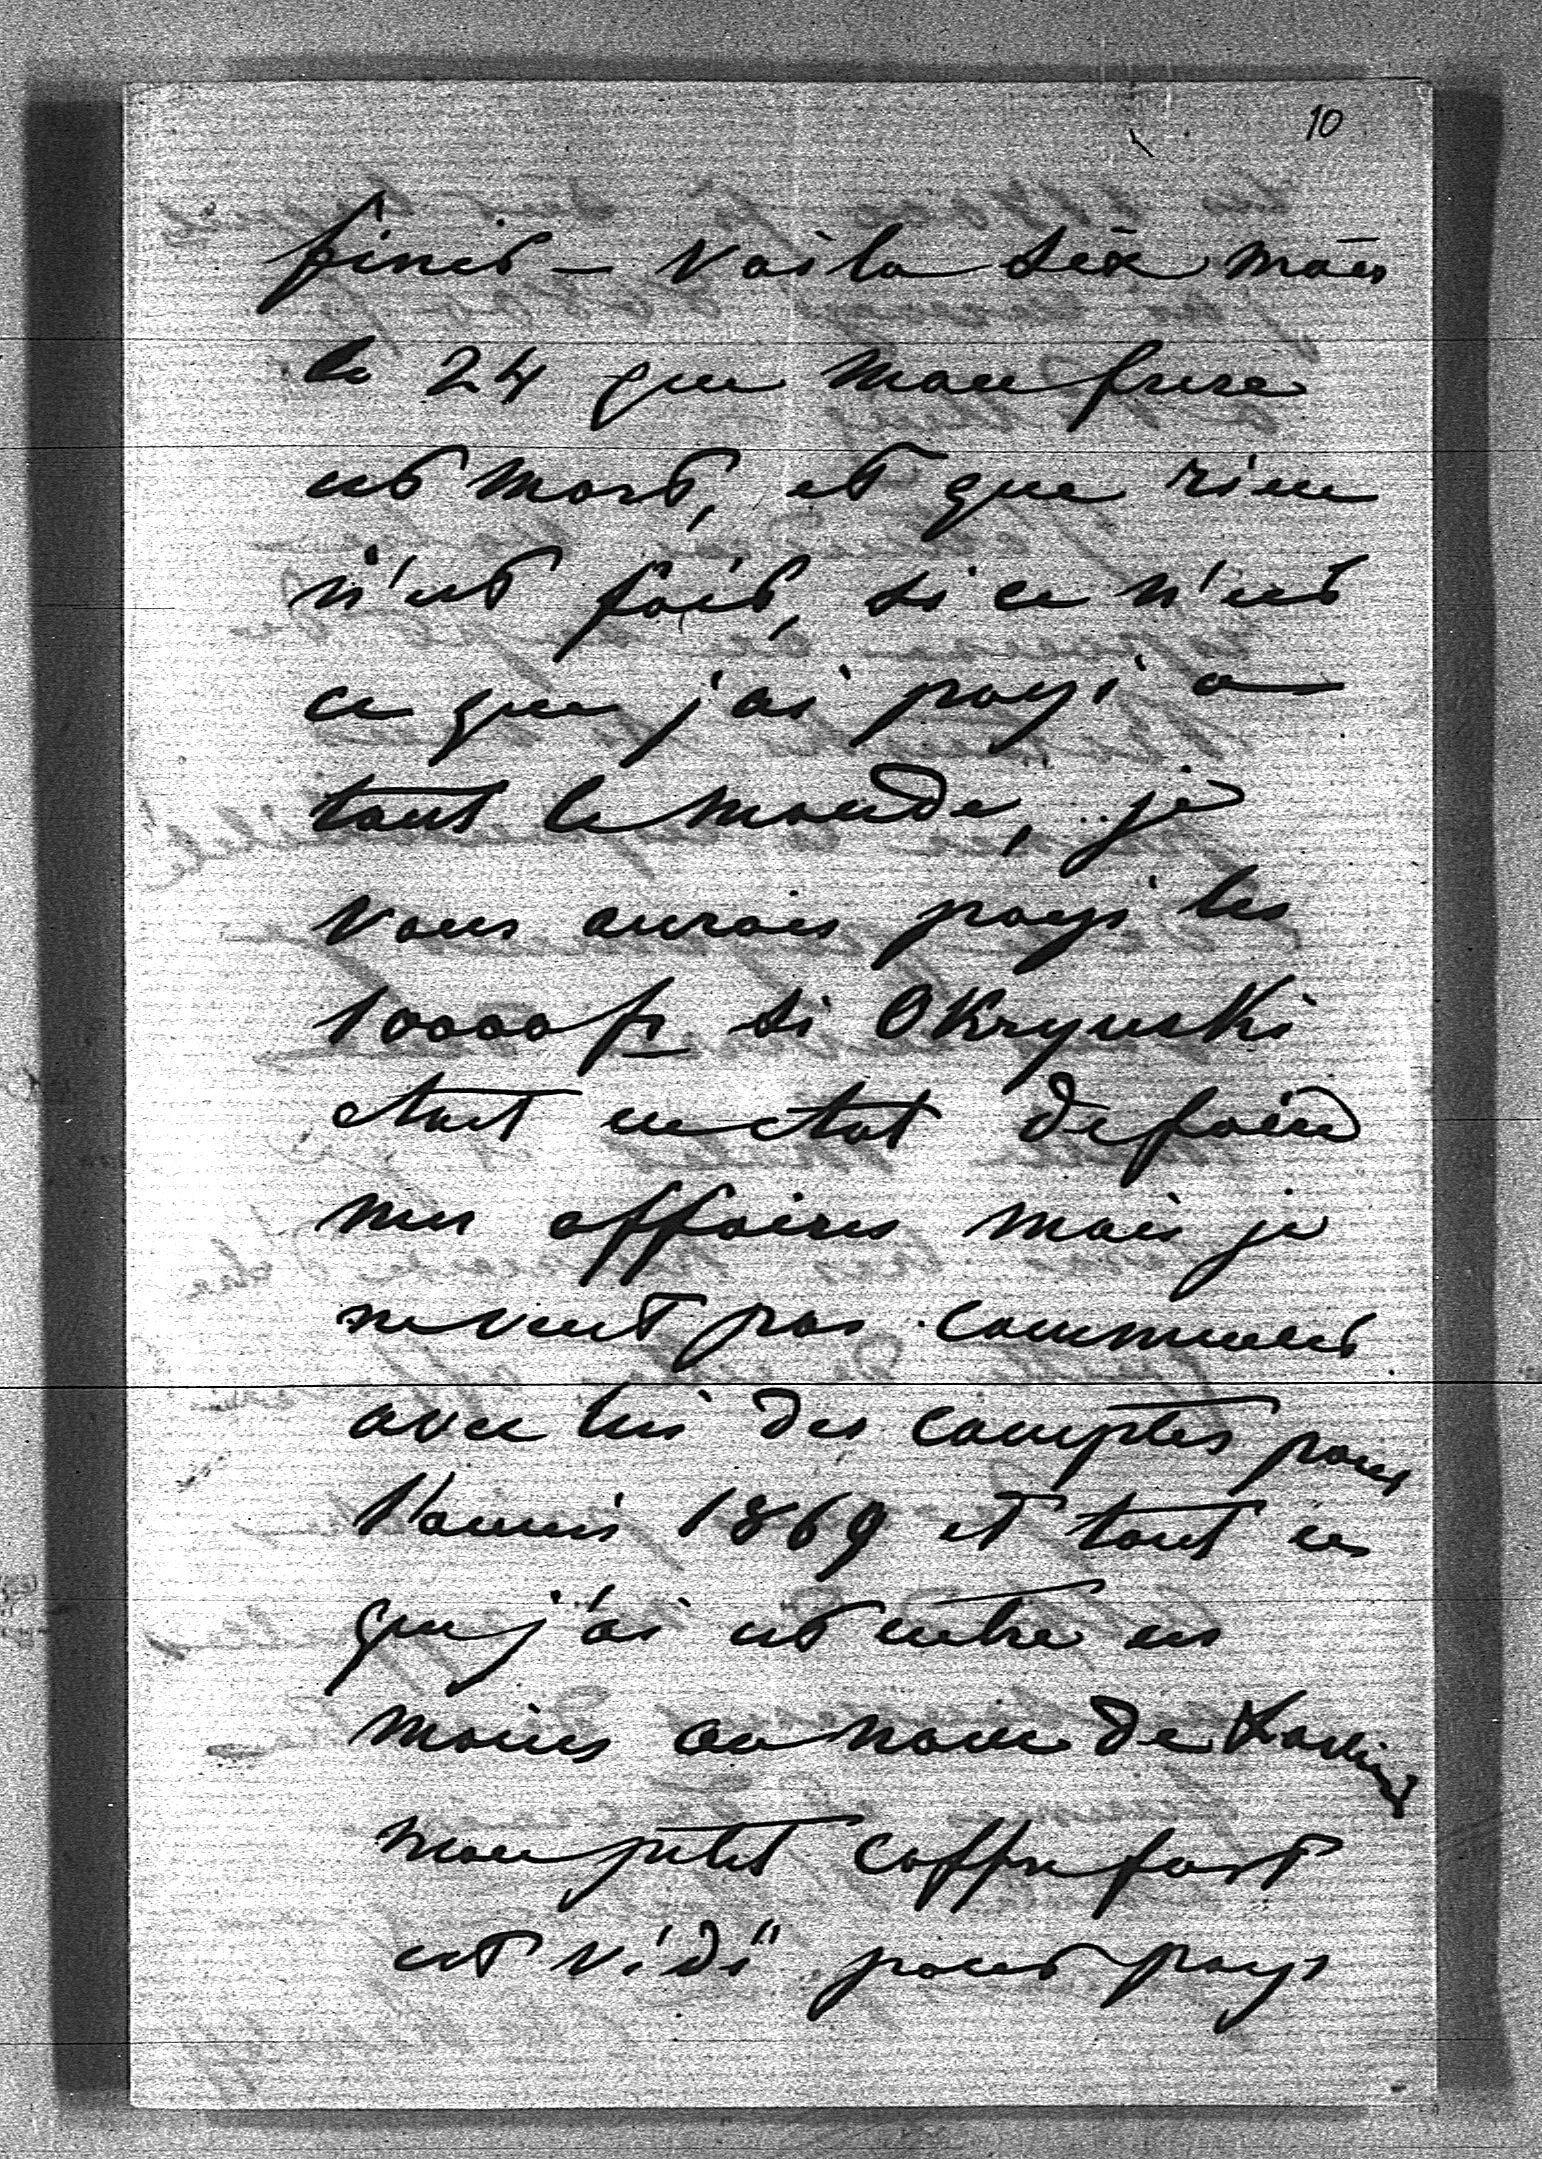 10
finit – Voila six mois
le 24 que mon frere
est mort, et que rien
n'est fait, si ce n'est
ce que j'ai payé a
tout le monde, je
vous aurais payé les
10000 fr si Okrynski
etait en etat de faire
mes affaires mais je
ne veut pas commencer
avec lui des comptes pour
l'année 1869 et tout ce
que j'ai est entre ses
mains au nom de
mon petit coffre fort
est vidé pour paye